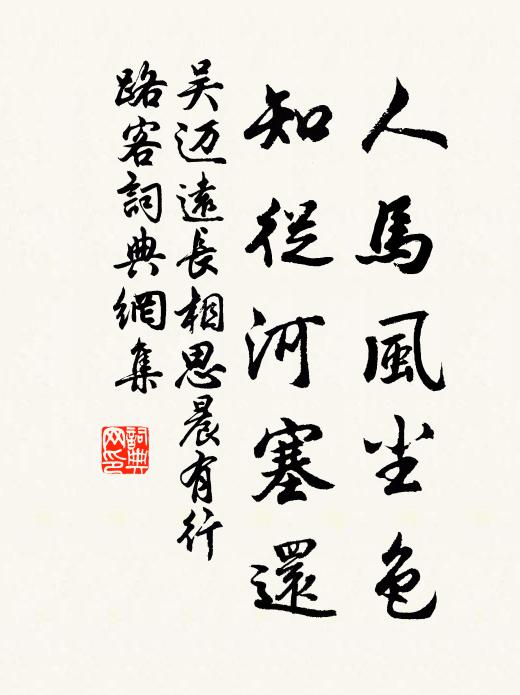 人馬風尘色
知從河塞還
吴迈遠長相思晨有行
路客詞典網集
詞典
网印